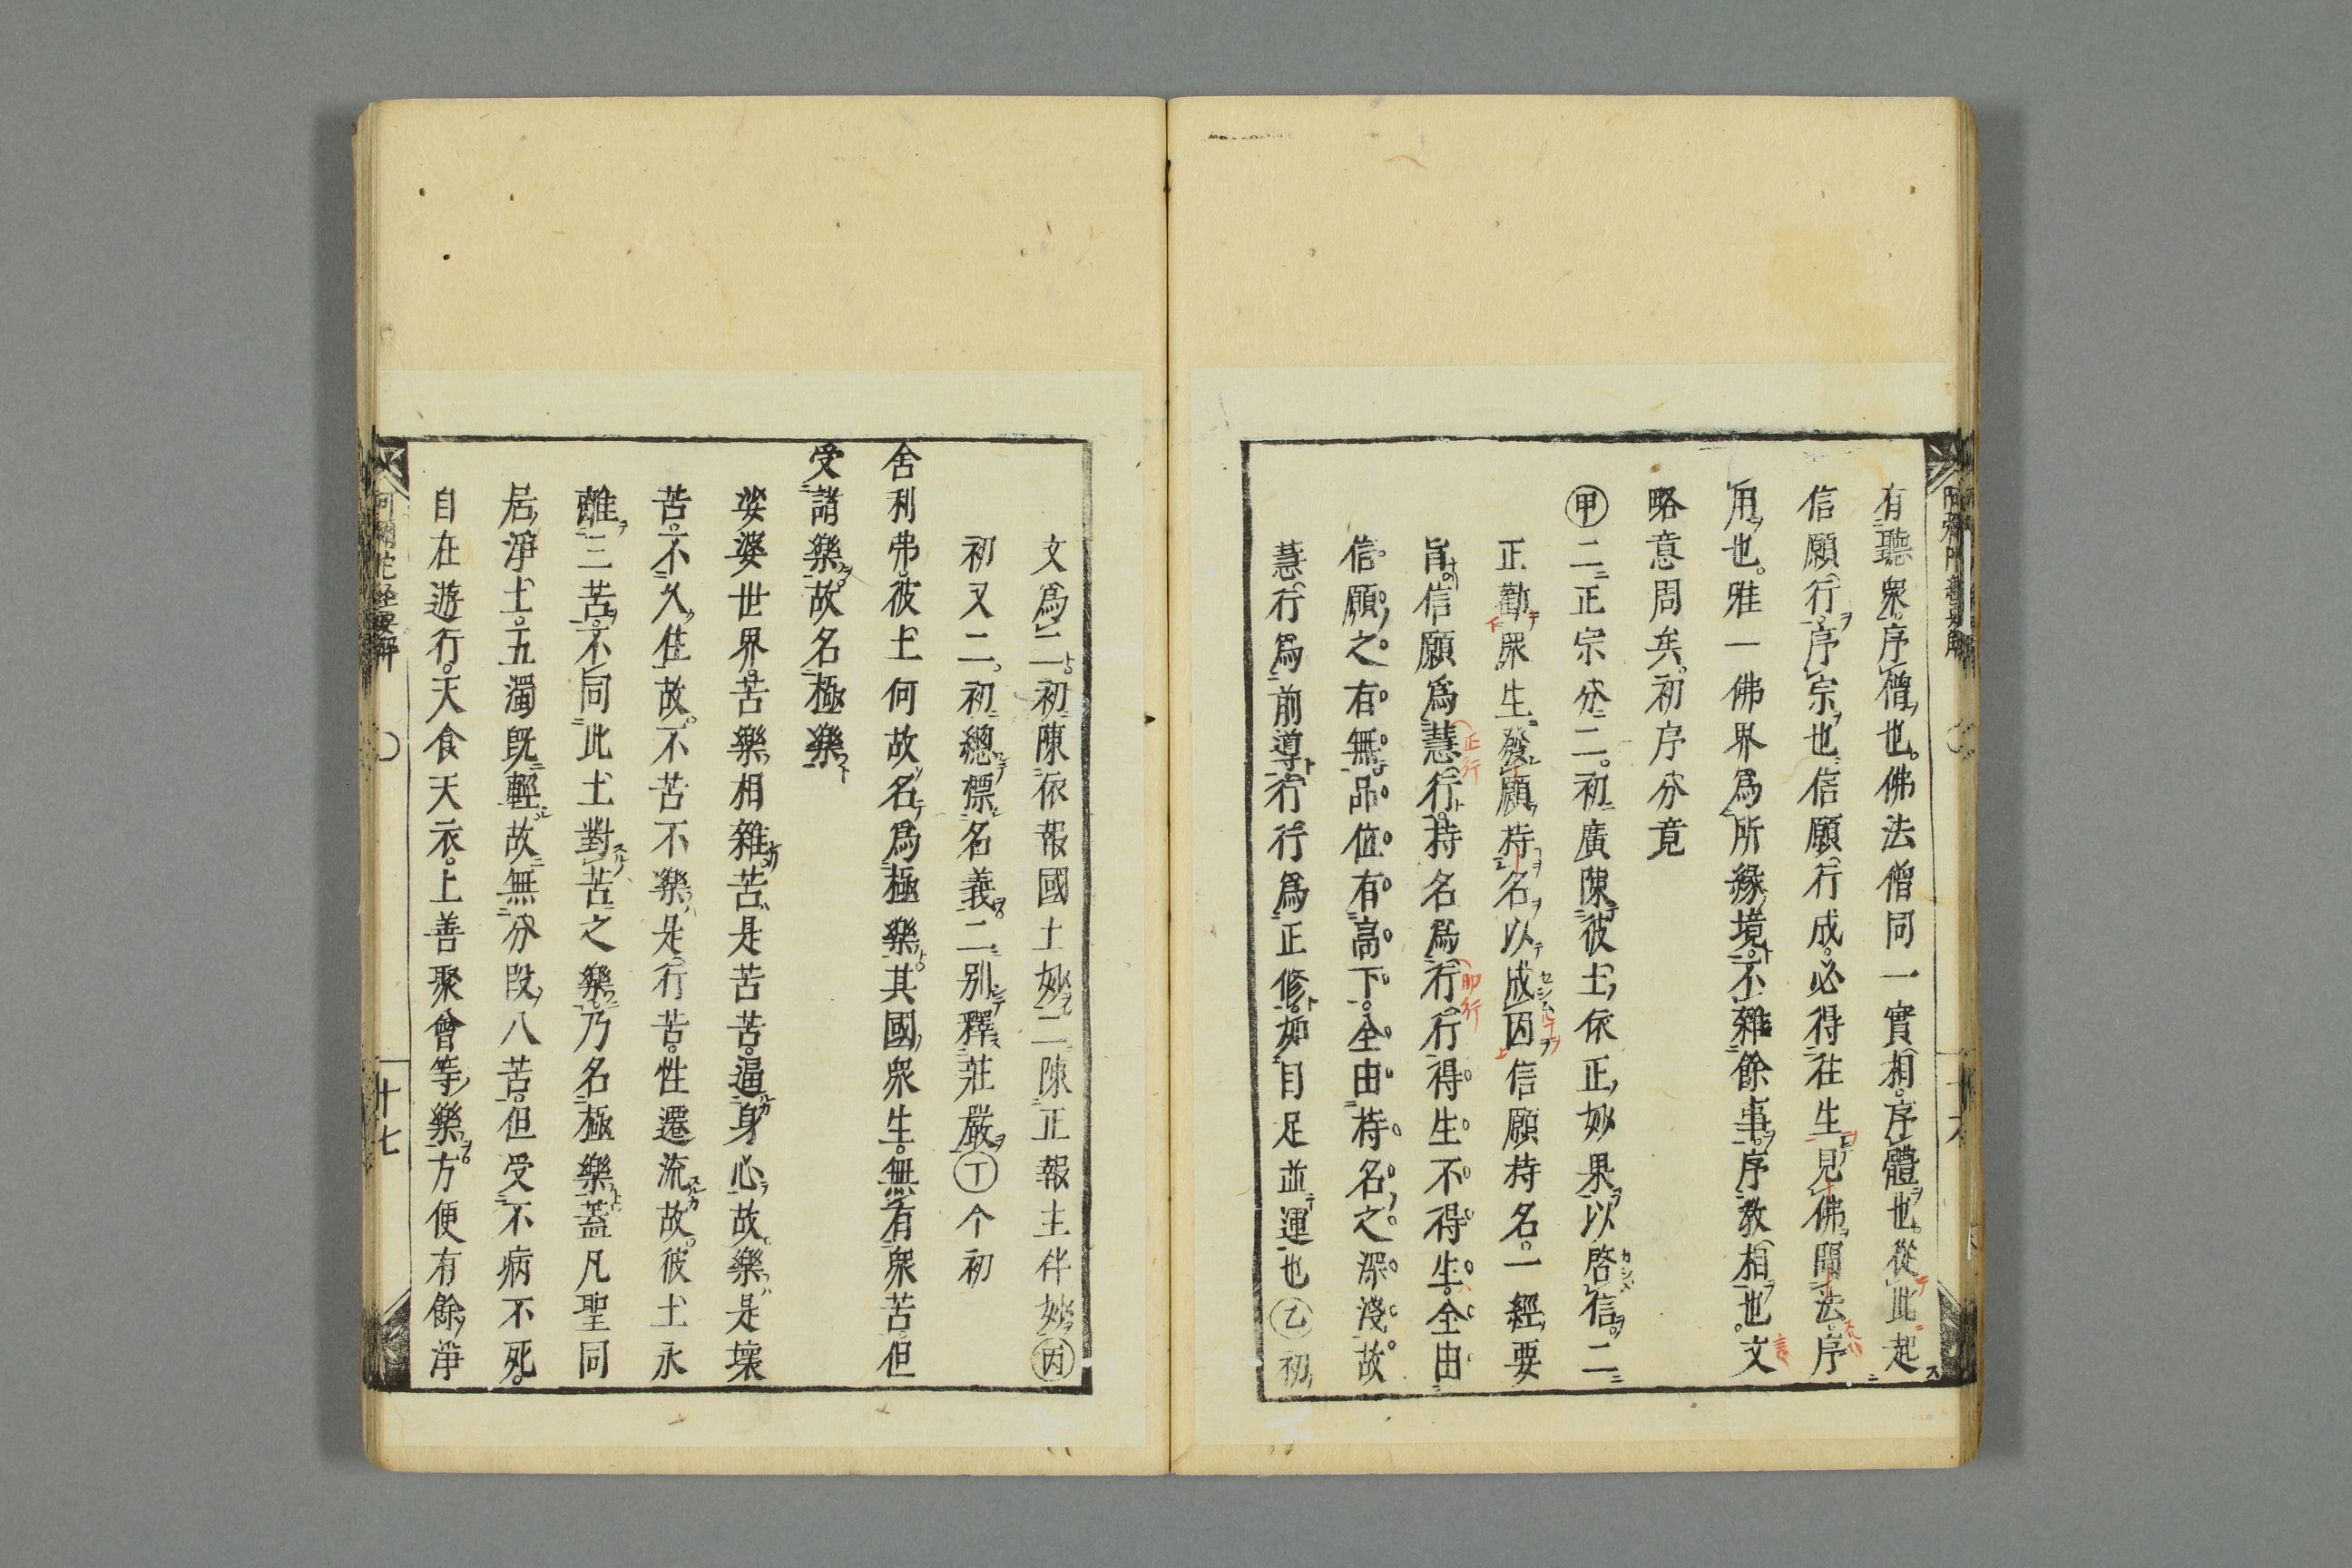 有聽衆序僧也佛法僧同一實相序體也從此起
信願行序宗也信願行成必得往生見佛聞法序
用也雅一佛界爲所緣境不雜餘事序敎相也文
略意周矣初序分竟
甲二正宗分二初廣陳彼土依正妙果以啓信二
正勸衆生發願持名以成因信願持名一經要
旨信願爲慧行持名爲行行得生不得生全由
信願之有無品位有高下全由持名之深淺故
慧行爲前導行行爲正修如目足並運也乙初
文爲二初陳依報國土妙二陳正報主伴妙丙
初又二初總標名義二別釋莊嚴丁个初
舍利弗彼土何故名爲極樂其國衆生無有衆苦但
受諸樂故名極樂
娑婆世界苦樂相雜苦是苦苦逼身心故樂是壞
苦不久住故不苦不樂是行苦性遷流故彼土永
離三苦不同此土對苦之樂乃名極樂蓋凡聖同
居淨土五濁既輕故無分段八苦但受不病不死
自在遊行天食天衣上善聚會等樂方便有餘淨
阿彌陀經要解
十七